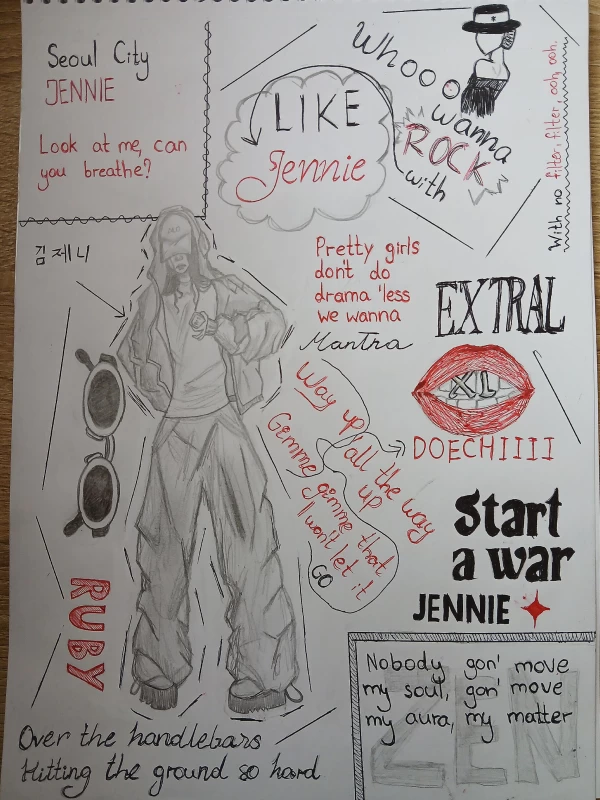 Seoul City
JENNIE
Look at me, can
you breathe?
LIKE
Jennie
Whooo
wanna
ROCK
with
With no filter, filter, ooh, ooh.
김제니
Pretty girls
don't do
drama 'less
we wanna
Mantra
EXTRAL
XL
DOECHIIII
Way up
'all the way
up
Gimme gimme that
I won't let it
GO
Start
a war
JENNIE
RUBY
Over the handlebars
Hitting the ground so hard
ZEN
Nobody gon' move
my soul, gon' move
my aura, my matter